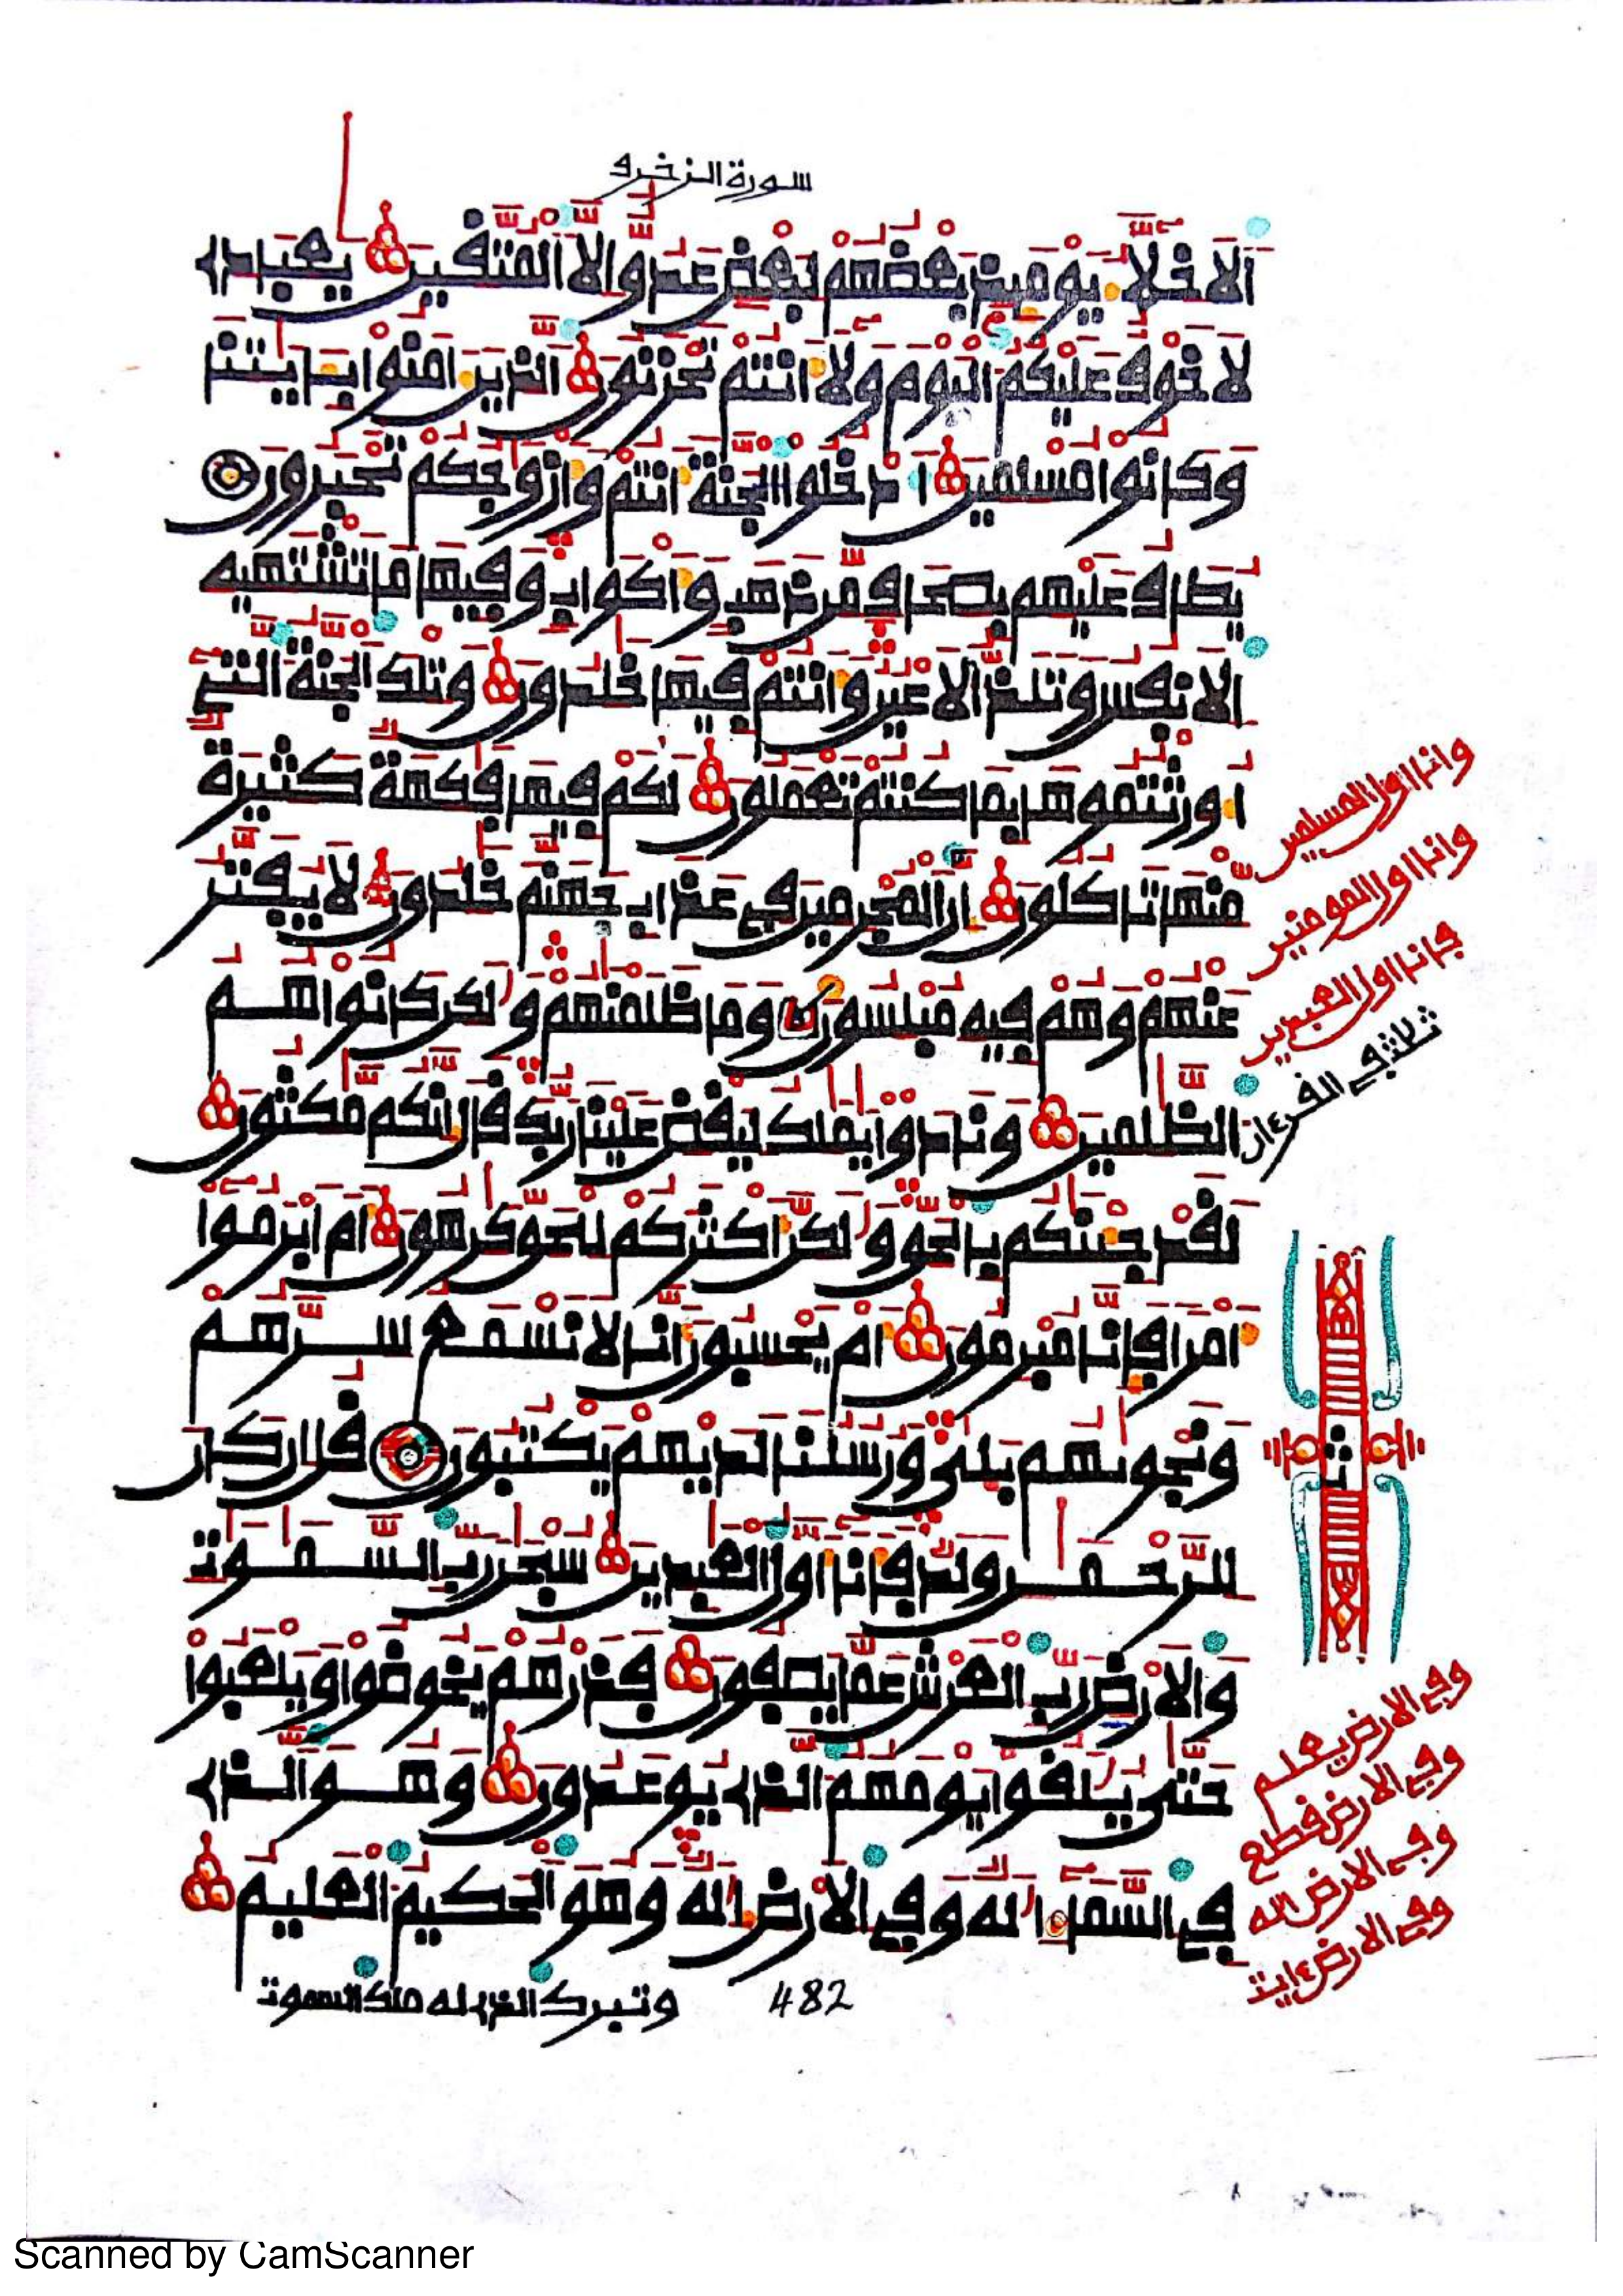 سورة الزخرف
اَلَاخِلَّآءُ يَوْمَئِذٍ بَعْضُهُمْ لِبَعْضٍ عَدُوٌّ اِلَّا اَلْمُتَّقِينَ يَٰعِبَادِے
لَا خَوْفٌ عَلَيْكُمُ اُلْيَوْمَ وَلَآ أَنتُمْ تَحْزَنُونَ اَلذِينَ ءَامَنُواْ بِـَٔايَٰتِنَا
وَكَانُواْ مُسْلِمِينَ اَدْخُلُواْ اُلْجَنَّةَ أَنتُمْ وَأَزْوَٰجُكُمْ تُحْبَرُونَ
يُطَافُ عَلَيْهِم بِصِحَافٍ مِّن ذَهَبٍ وَأَكْوَابٍ وَفِيهَا مَا تَشْتَهِيهِ
اِلَانفُسُ وَتَلَذُّ اُلَاعْيُنُ وَأَنتُمْ فِيهَا خَٰلِدُونَ وَتِلْكَ اَلْجَنَّةُ اُلتِےٓ
أُورِثْتُمُوهَا بِمَا كُنتُمْ تَعْمَلُونَ لَكُمْ فِيهَا فَٰكِهَةٌ كَثِيرَةٌ
مِّنْهَا تَاكُلُونَ إِنَّ اَلْمُجْرِمِينَ فِے عَذَابِ جَهَنَّمَ خَٰلِدُونَ لَا يُفَتَّرُ
عَنْهُمْ وَهُمْ فِيهِ مُبْلِسُونَ وَمَا ظَلَمْنَٰهُمْ وَلَٰكِن كَانُواْ هُمُ
اُلظَّٰلِمِينَ وَنَادَوْاْ يَٰمَٰلِكُ لِيَقْضِ عَلَيْنَا رَبُّكَ قَالَ إِنَّكُم مَّٰكِثُونَ
لَقَدْ جِئْنَٰكُم بِالْحَقِّ وَلَٰكِنَّ أَكْثَرَكُمْ لِلْحَقِّ كَٰرِهُونَ أَمَ اَبْرَمُوٓاْ
أَمْرًا فَإِنَّا مُبْرِمُونَ أَمْ يَحْسِبُونَ أَنَّا لَا نَسْمَعُ سِرَّهُمْ
وَنَجْوَىٰهُم بَلَىٰ وَرُسُلُنَا لَدَيْهِمْ يَكْتُبُونَ قُلِ ان كَانَ
لِلرَّحْمَٰنِ وَلَدٌ فَأَنَآ أَوَّلُ اُلْعَٰبِدِينَ سُبْحَٰنَ رَبِّ اِلسَّمَٰوَٰتِ
وَالَارْضِ رَبِّ اِلْعَرْشِ عَمَّا يَصِفُونَ فَذَرْهُمْ يَخُوضُواْ وَيَلْعَبُواْ
حَتَّىٰ يُلَٰقُواْ يَوْمَهُمُ اُلذِے يُوعَدُونَ وَهُوَ اَلذِے
فِے اِلسَّمَآءِ اِلَٰهٌ وَفِے اِلَارْضِ إِلَٰهٌ وَهُوَ اَلْحَكِيمُ اُلْعَلِيمُ
وتبرك الذے له ملك السموت
482
وانا اول المسلمين
وانا اول المومنين
فانا اول العبدين
ثلثة في القرءان
ث
وفے الارض يعلم
وفے الارض قطع
وفے الارض اله
وفے الارض ءايت
Scanned by CamScanner